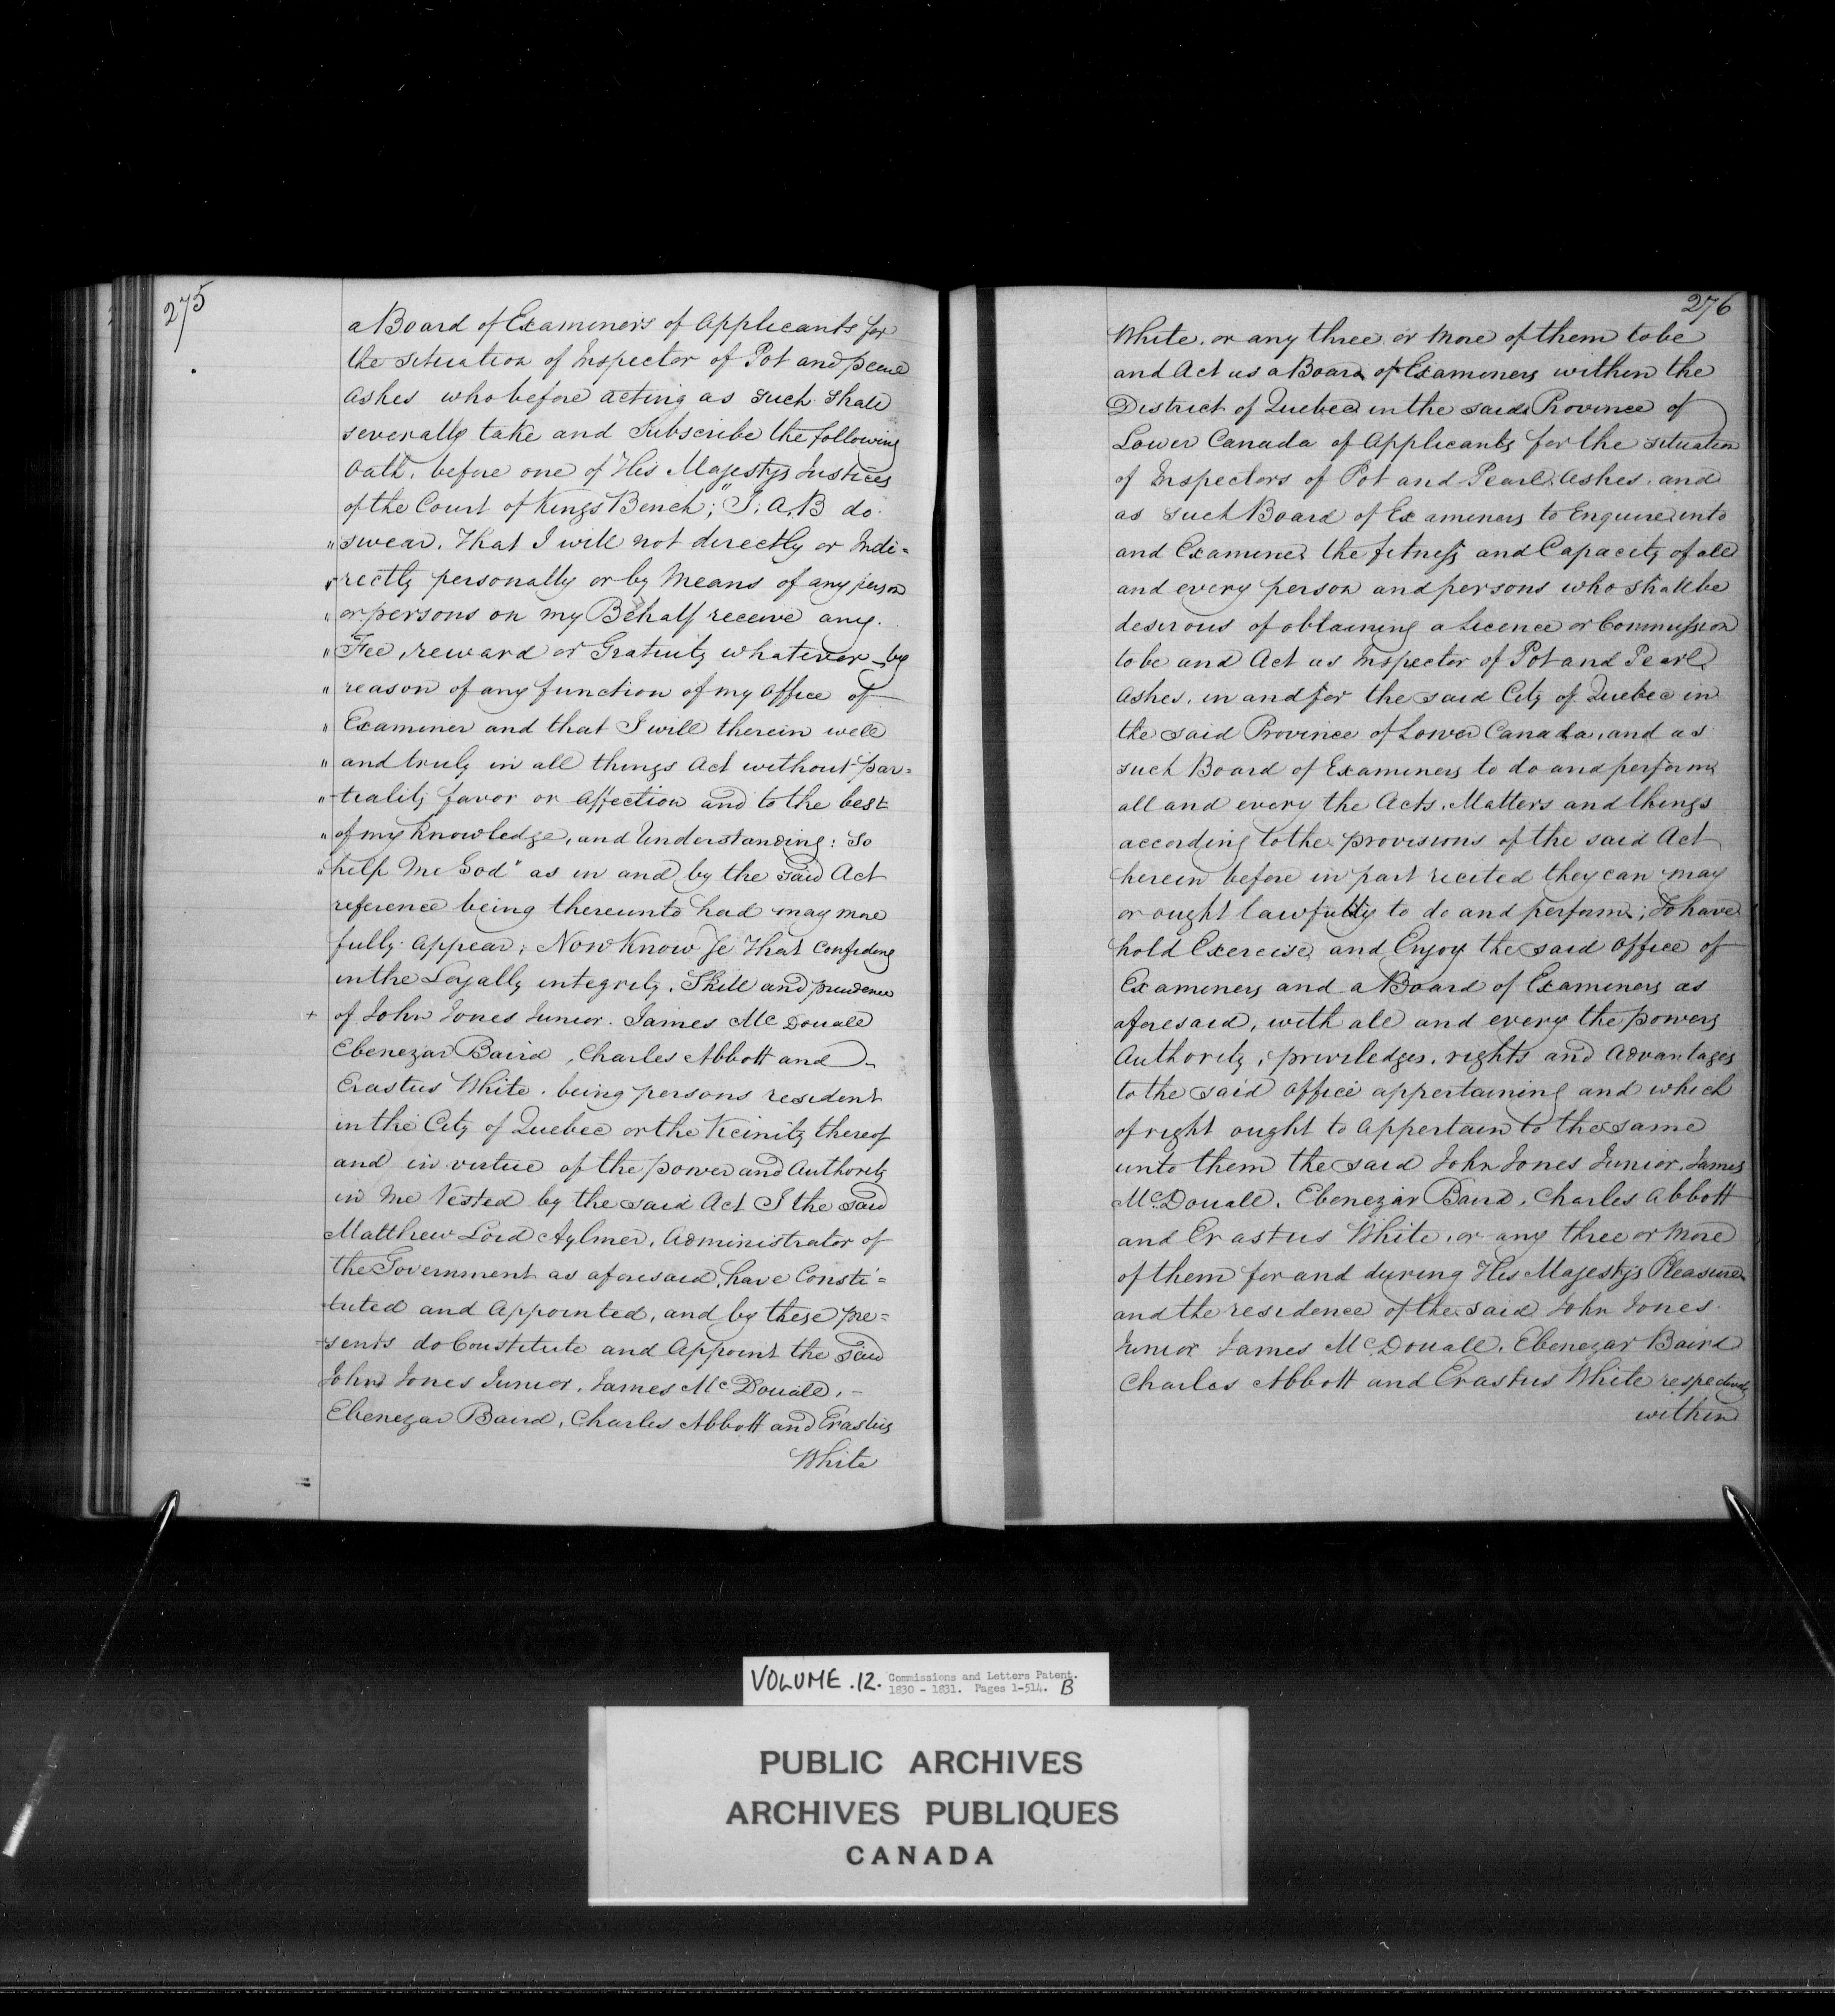 275
a Board of Examiners of Applicants for
the situation of Inspector of Pot and pearl
Ashes who before acting as such shall
severally take and Subscribe the following
Oath, before one of His Majestys Justices
of the Court of Kings Bench; "I, A, B do
" swear, That I will not directly or Indi=
" rectly personally or by Means of any person
" or persons on my Behalf receive any
" Fee, reward or Gratuity whatever by
" reason of any function of my Office of
" Examiner and that I will therein well
" and truly in all things Act without par=
" tiality favor or Affection and to the best
" of my Knowledge, and Understanding: So
" help Me God" as in and by the said Act
reference being thereunto had may more
fully appear; Now Know Ye That Confiding
in the Loyalty integrity, Skill and prudence
+ of John Jones Junior. James Mc Douall
Ebenezar Baird, Charles Abbott and
Erastus White. being persons resident
in the City of Quebec or the Vicinity thereof
and in virtue of the power and Authority
in Me Vested by the said Act I the said
Matthew Lord Aylmer, Administrator of
the Government as aforesaid, have Consti=
tuted and Appointed, and by these pre=
sents do Constitute and Appoint the said
John Jones Junior, James Mc Douall, -
Ebenezar Baird, Charles Abbott and Erastus
White
276
White, or any three or More of them to be
and Act as a Board of Examiners within the
District of Quebec in the said Province of
Lower Canada of Applicants for the situation
of Inspectors of Pot and Pearl Ashes, and
as such Board of Examiners to Enquire into
and Examine the fitness and Capacity of all
and every person and persons who shall be
desirous of obtaining a Licence or Commission
to be and Act as Inspector of Pot and Pearl
Ashes, in and for the said City of Quebec in
the said Province of Lower Canada, and as
such Board of Examiners to do and perform
all and every the Acts, Matters and things
according to the provisions of the said Act
herein before in part recited they can may
or ought lawfully to do and perform; To have
hold Exercise and Enjoy the said Office of
Examiners and a Board of Examiners as
aforesaid, with all and every the powers
Authority, priviledges, rights and Advantages
to the said Office appertaining and which
of right ought to Appertain to the same
unto them the said John Jones Junior, James
Mc Douall, Ebenezar Baird, Charles Abbott
and Erastus White, or any three or More
of them for and during His Majestys Pleasure
and the residence of the said John Jones
Junior James Mc Douall, Ebenezar Baird
Charles Abbott and Erastus White respectively
within
VOLUME .12. Commissions and Letters Patent.
1830 - 1831. Pages 1-514. B
PUBLIC ARCHIVES
ARCHIVES PUBLIQUES
CANADA